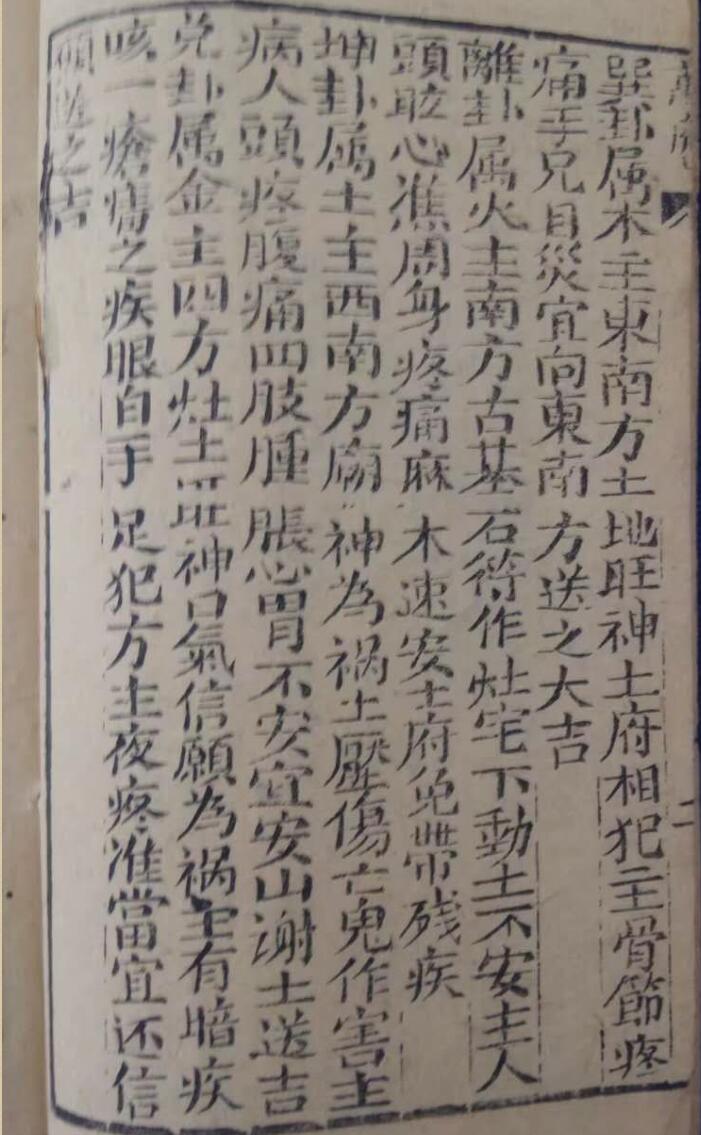 巽卦属木主東南方土地旺神土府相犯主骨節疼
痛手足目災宜向東南方送之大吉
離卦属火主南方古基石符作灶宅下動土不安主人
頭眩心焦周身疼痛麻木速安土府免帶残疾
坤卦属土主西南方廟神為祸土壓傷亡鬼作害主
病人頭疼腹痛四肢腫脹心胃不安宜安山謝土送吉
兑卦属金主四方灶土旺神口氣信願為祸主有暗疾
咳一瘡瘍之疾眼自手足犯方主夜疼准當宜还信
願送之吉
二